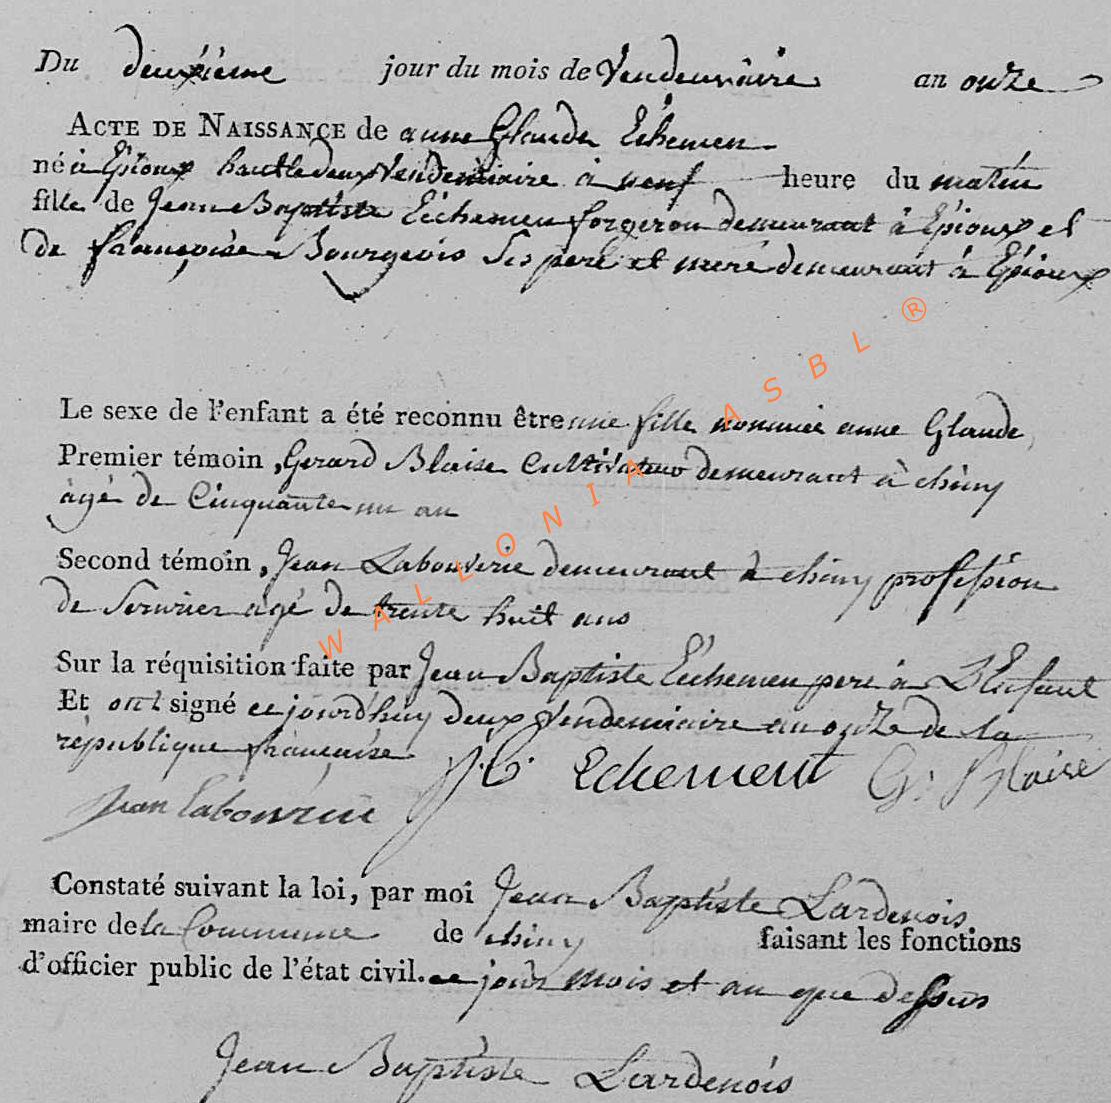 Du deuxième jour du mois de Vendemiaire an onze
ACTE DE NAISSANCE de anne Glaude Echemen
né à Épioux hault le deux Vendemiaire à neuf heure du matin
fille de Jean Baptiste Echemen forgeron demeurant à Épioux et
de françoise Bourgeois ses pere et mere demeurant à Épioux
Le sexe de l'enfant a été reconnu être une fille nommée anne Glaude
Premier témoin, Gerard Blaise Cultivateur demeurant à chiny
âgé de Cinquante un an
Second témoin, Jean Labouverie demeurant à chiny profession
de Serurier agé de trente huit ans
Sur la réquisition faite par Jean Baptiste Echemen pere à L'Enfant
Et ont signé ce jourd'huy deux Vendemiaire an onze de la
république française
J. B. Echement G. Blaise
Jean Labouverie
Constaté suivant la loi, par moi Jean Baptiste Lardenois
maire de la Commune de chiny faisant les fonctions
d'officier public de l'état civil. ce jour mois et an que dessus
Jean Baptiste Lardenois
WALLONIA ASBL ®